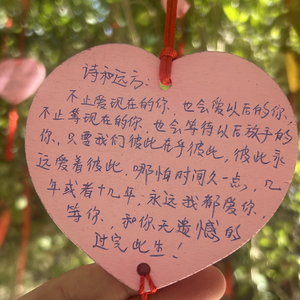 诗和远方：
不止爱现在的你、也会爱以后的你，
不止等现在的你、也会等待以后放手的
你，只要我们彼此在乎彼此，彼此永
远爱着彼此。哪怕时间久一点，几
年或者十几年、永远我都爱你、
等你、和你无遗憾的
过完此生！